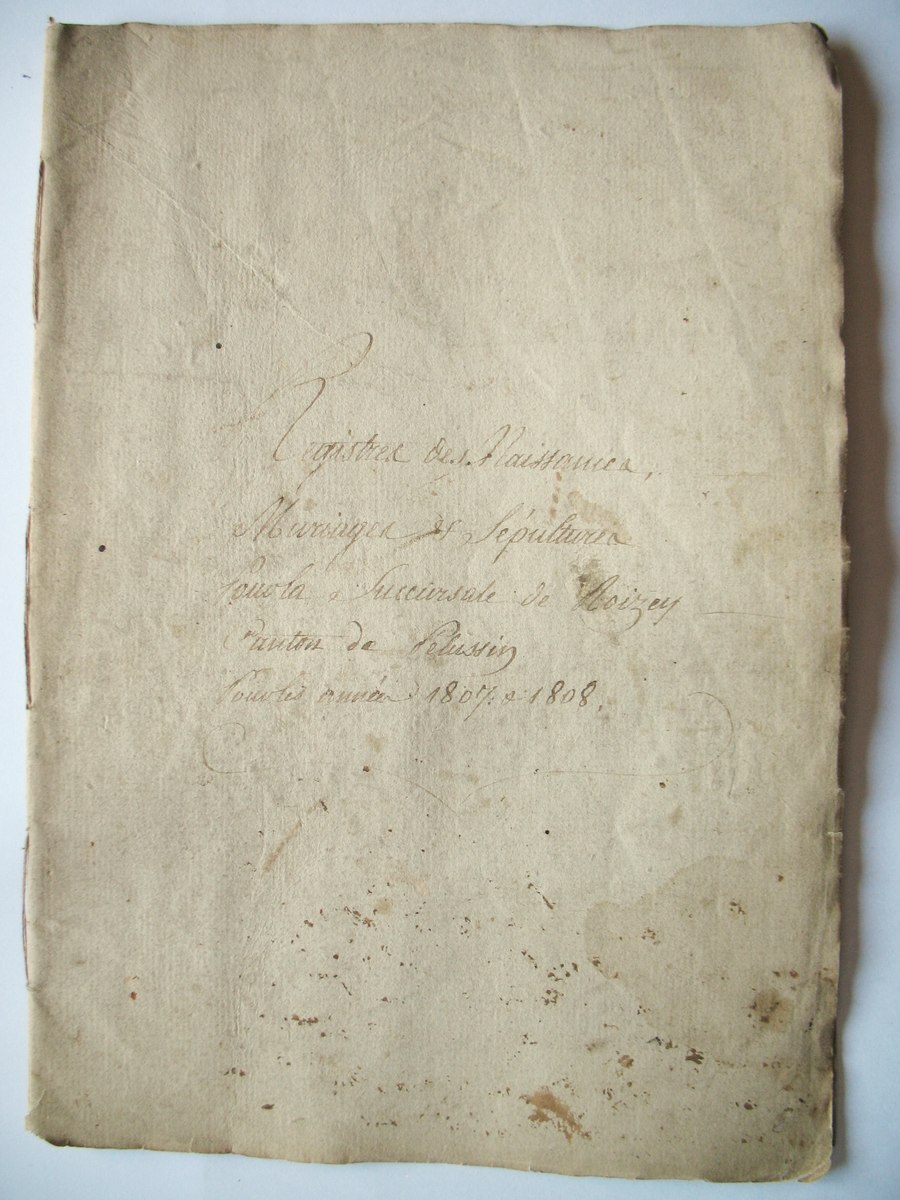 Registres des Naissances,
Mariages et Sépultures
Pour la Succursale de Roizey
Canton de Pelussin
Pour les années 1807 & 1808.